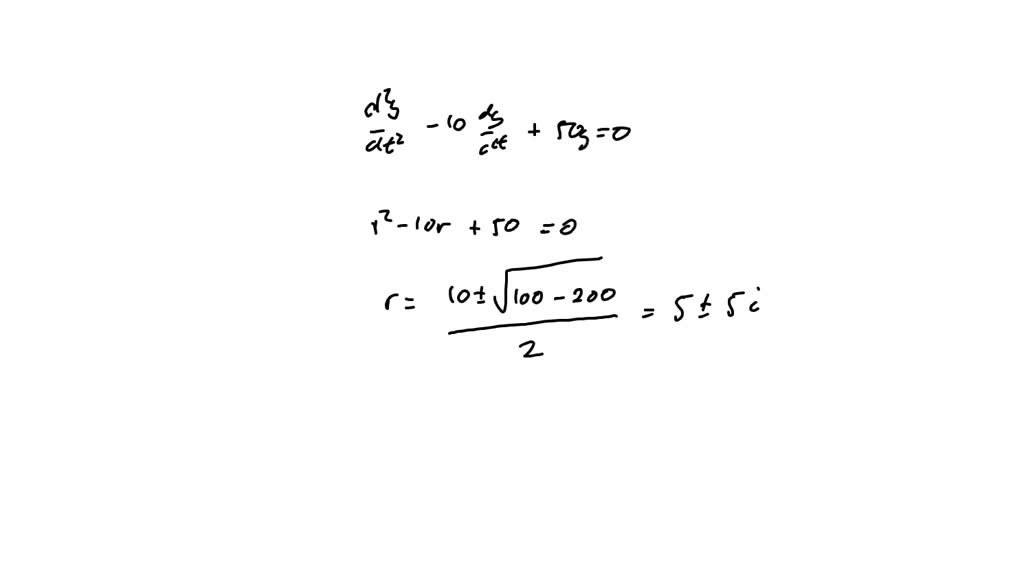 d²z/dt² - 10 dz/dt + 50z = 0
r² - 10r + 50 = 0
r = (10 ± √(100 - 200))/2 = 5 ± 5i